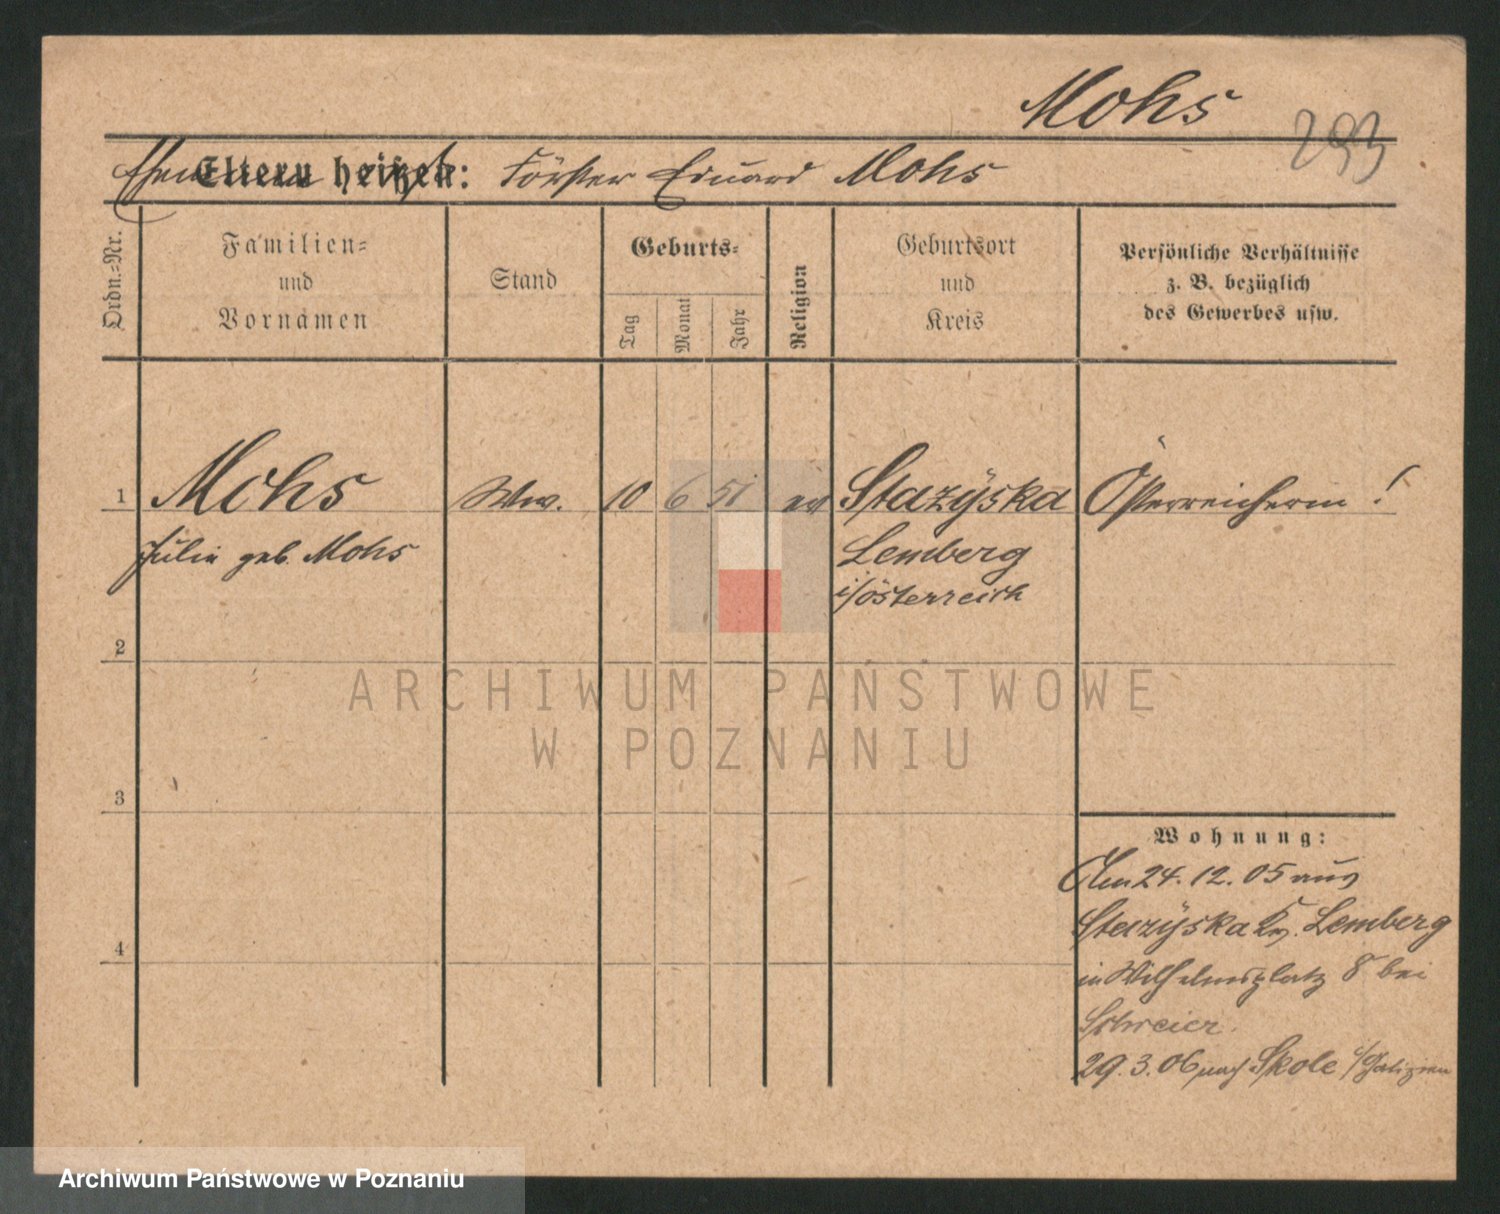 Mohs
293
Eltern heißen: Förster Eduard Mohs
Ordn.-Nr.
Familien-
und
Vornamen
Stand
Geburts-
Tag
Monat
Jahr
Religion
Geburtsort
und
Kreis
Persönliche Verhältnisse
z. B. bezüglich
des Gewerbes usw.
1 Mohs Ww. 10 6 51 ev Stazÿska Österreicherin!
Julie geb. Mohs Lemberg
i/österreich
2
ARCHIWUM PAŃSTWOWE
W POZNANIU
3
Wohnung:
Am 24. 12. 05 aus
4 Stazÿska Kr. Lemberg
in Wilhelmsplatz 8 bei
Schreier.
29. 3. 06 nach Skole i/Galizien
Archiwum Państwowe w Poznaniu